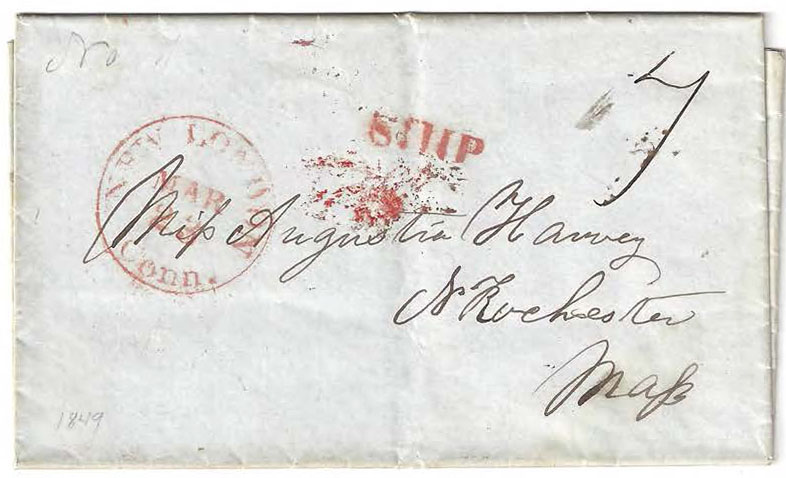 No
7
SHIP
NEW LONDON
MAR
Conn.
Miſs Augustia Harvey
N. Rochester
Maſs
1849